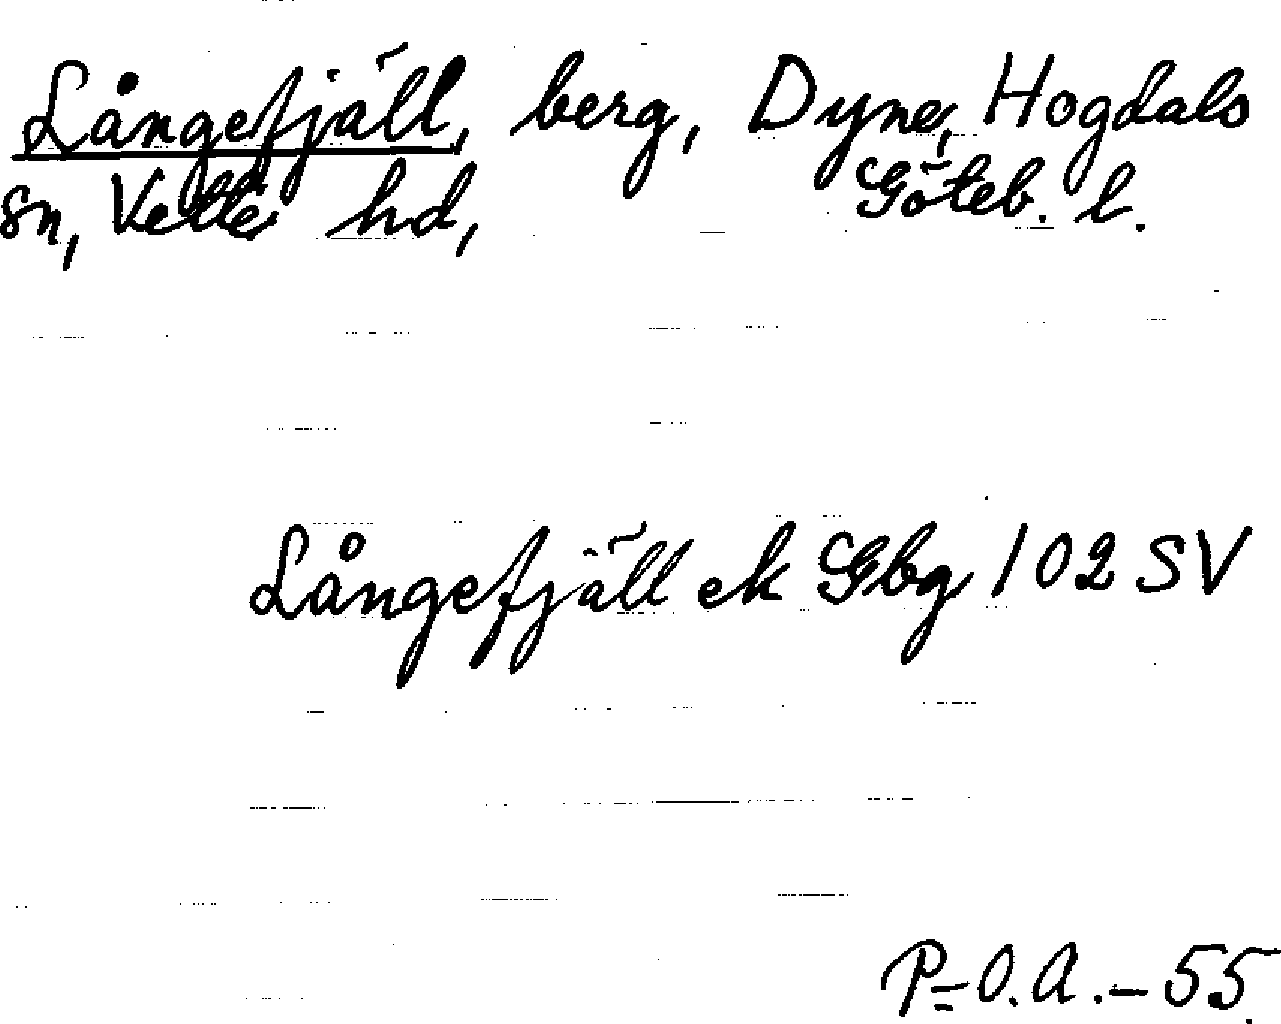 Långefjäll, berg, Dyne, Hogdals
sn, Vette hd, Göteb. l.
Långefjäll ek Gbg 102 SV
P-O.A.-55.